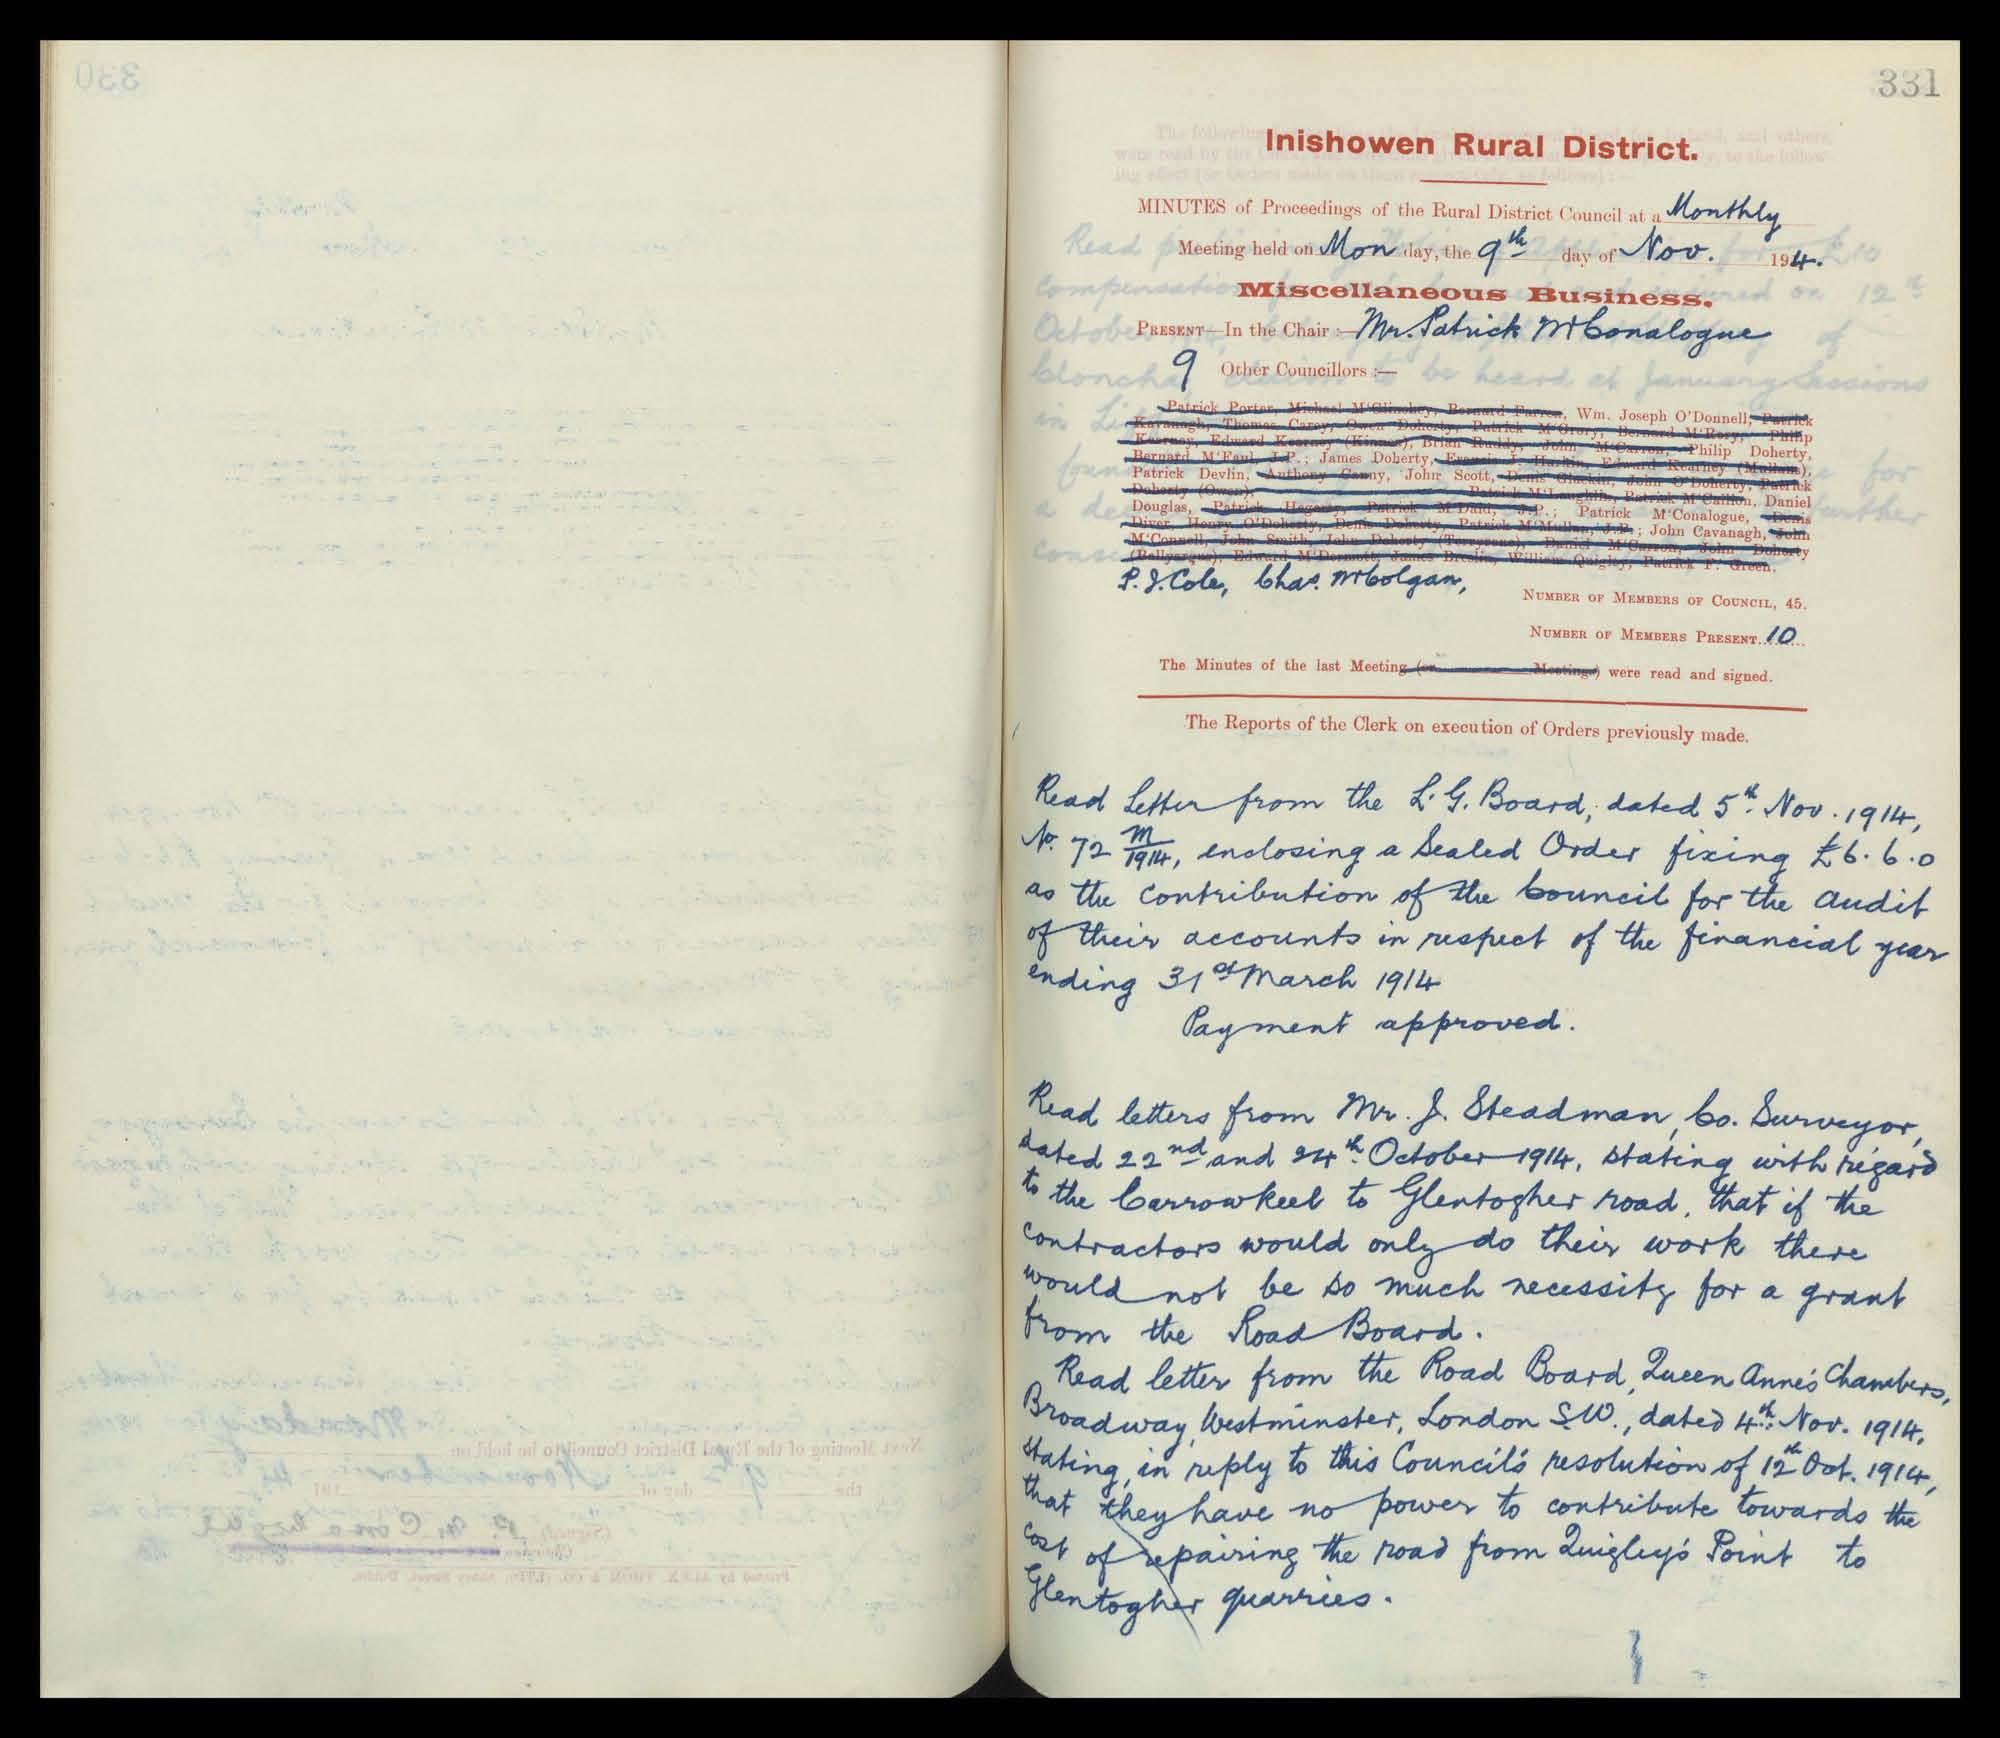 331
Inishowen Rural District.
MINUTES of Proceedings of the Rural District Council at a Monthly
Meeting held on Mon day, the 9th day of Nov. 1914.
Miscellaneous Business.
PRESENT—In the Chair :—Mr. Patrick McConalogue
9 Other Councillors :—
Patrick Porter, Michael M'Glinchey, Bernard Farren, Wm. Joseph O'Donnell, Patrick
Kavanagh, Thomas Carey, Owen Doherty, Patrick M'Grory, Bernard M'Rory, Philip
Kearney, Edward Kearney (Kinnea), Brian Ruddy, John M'Carron, Philip Doherty,
Bernard M'Faul, J.P.; James Doherty, Francis J. Harkin, Edward Kearney (Mullans),
Patrick Devlin, Anthony Canny, John Scott, Denis Glackin, John O'Doherty, Patrick
Doherty (Owen), Patrick M'Laughlin, Patrick M'Callion, Daniel
Douglas, Patrick Hegarty, Patrick M'Daid, J.P.; Patrick M'Conalogue, Denis
Diver, Henry O'Doherty, Denis Doherty, Patrick M'Mullan, J.P.; John Cavanagh, John
M'Connell, John Smith, John Doherty (Terryrone), Daniel M'Carron, John Doherty
(Ballyargus), Edward M'Dermott, James Breslin, William Quigley, Patrick F. Green.
P. J. Cole, Chas. McColgan,
NUMBER OF MEMBERS OF COUNCIL, 45.
NUMBER OF MEMBERS PRESENT 10
The Minutes of the last Meeting (or Meetings) were read and signed.
The Reports of the Clerk on execution of Orders previously made.
Read Letter from the L. G. Board, dated 5th Nov. 1914,
No. 72 M/1914, enclosing a Sealed Order fixing £6.6.0
as the contribution of the Council for the Audit
of their accounts in respect of the financial year
ending 31st March 1914
Payment approved.
Read letters from Mr. J. Steadman, Co. Surveyor,
dated 22nd and 24th October 1914, stating with regard
to the Carrowkeel to Glentogher road, that if the
contractors would only do their work there
would not be so much necessity for a grant
from the Road Board.
Read letter from the Road Board, Queen Anne's Chambers,
Broadway, Westminster, London S.W., dated 4th Nov. 1914,
stating, in reply to this Council's resolution of 12th Oct. 1914,
that they have no power to contribute towards the
cost of repairing the road from Quigley's Point to
Glentogher quarries.